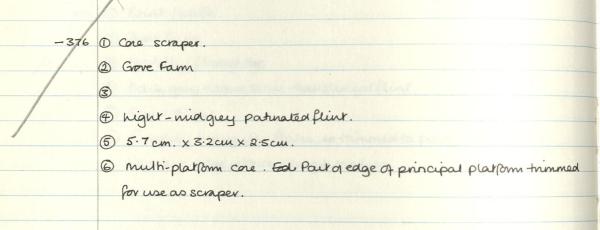 -376 ① Core scraper.
② Grove Farm
③
④ Light-mid grey patinated flint.
⑤ 5.7cm. x 3.2cm x 2.5cm.
⑥ Multi-platform core. Part of edge of principal platform trimmed
for use as scraper.